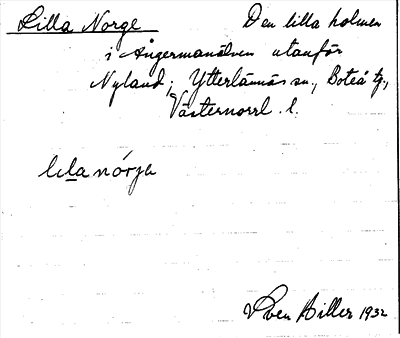 Lilla Norge Den lilla holmen
i Ångermanälven utanför
Nyland; Ytterlännäs sn, Boteå tg,
Västernorrl. l.
lıla nórgə
Sven Hiller 1932